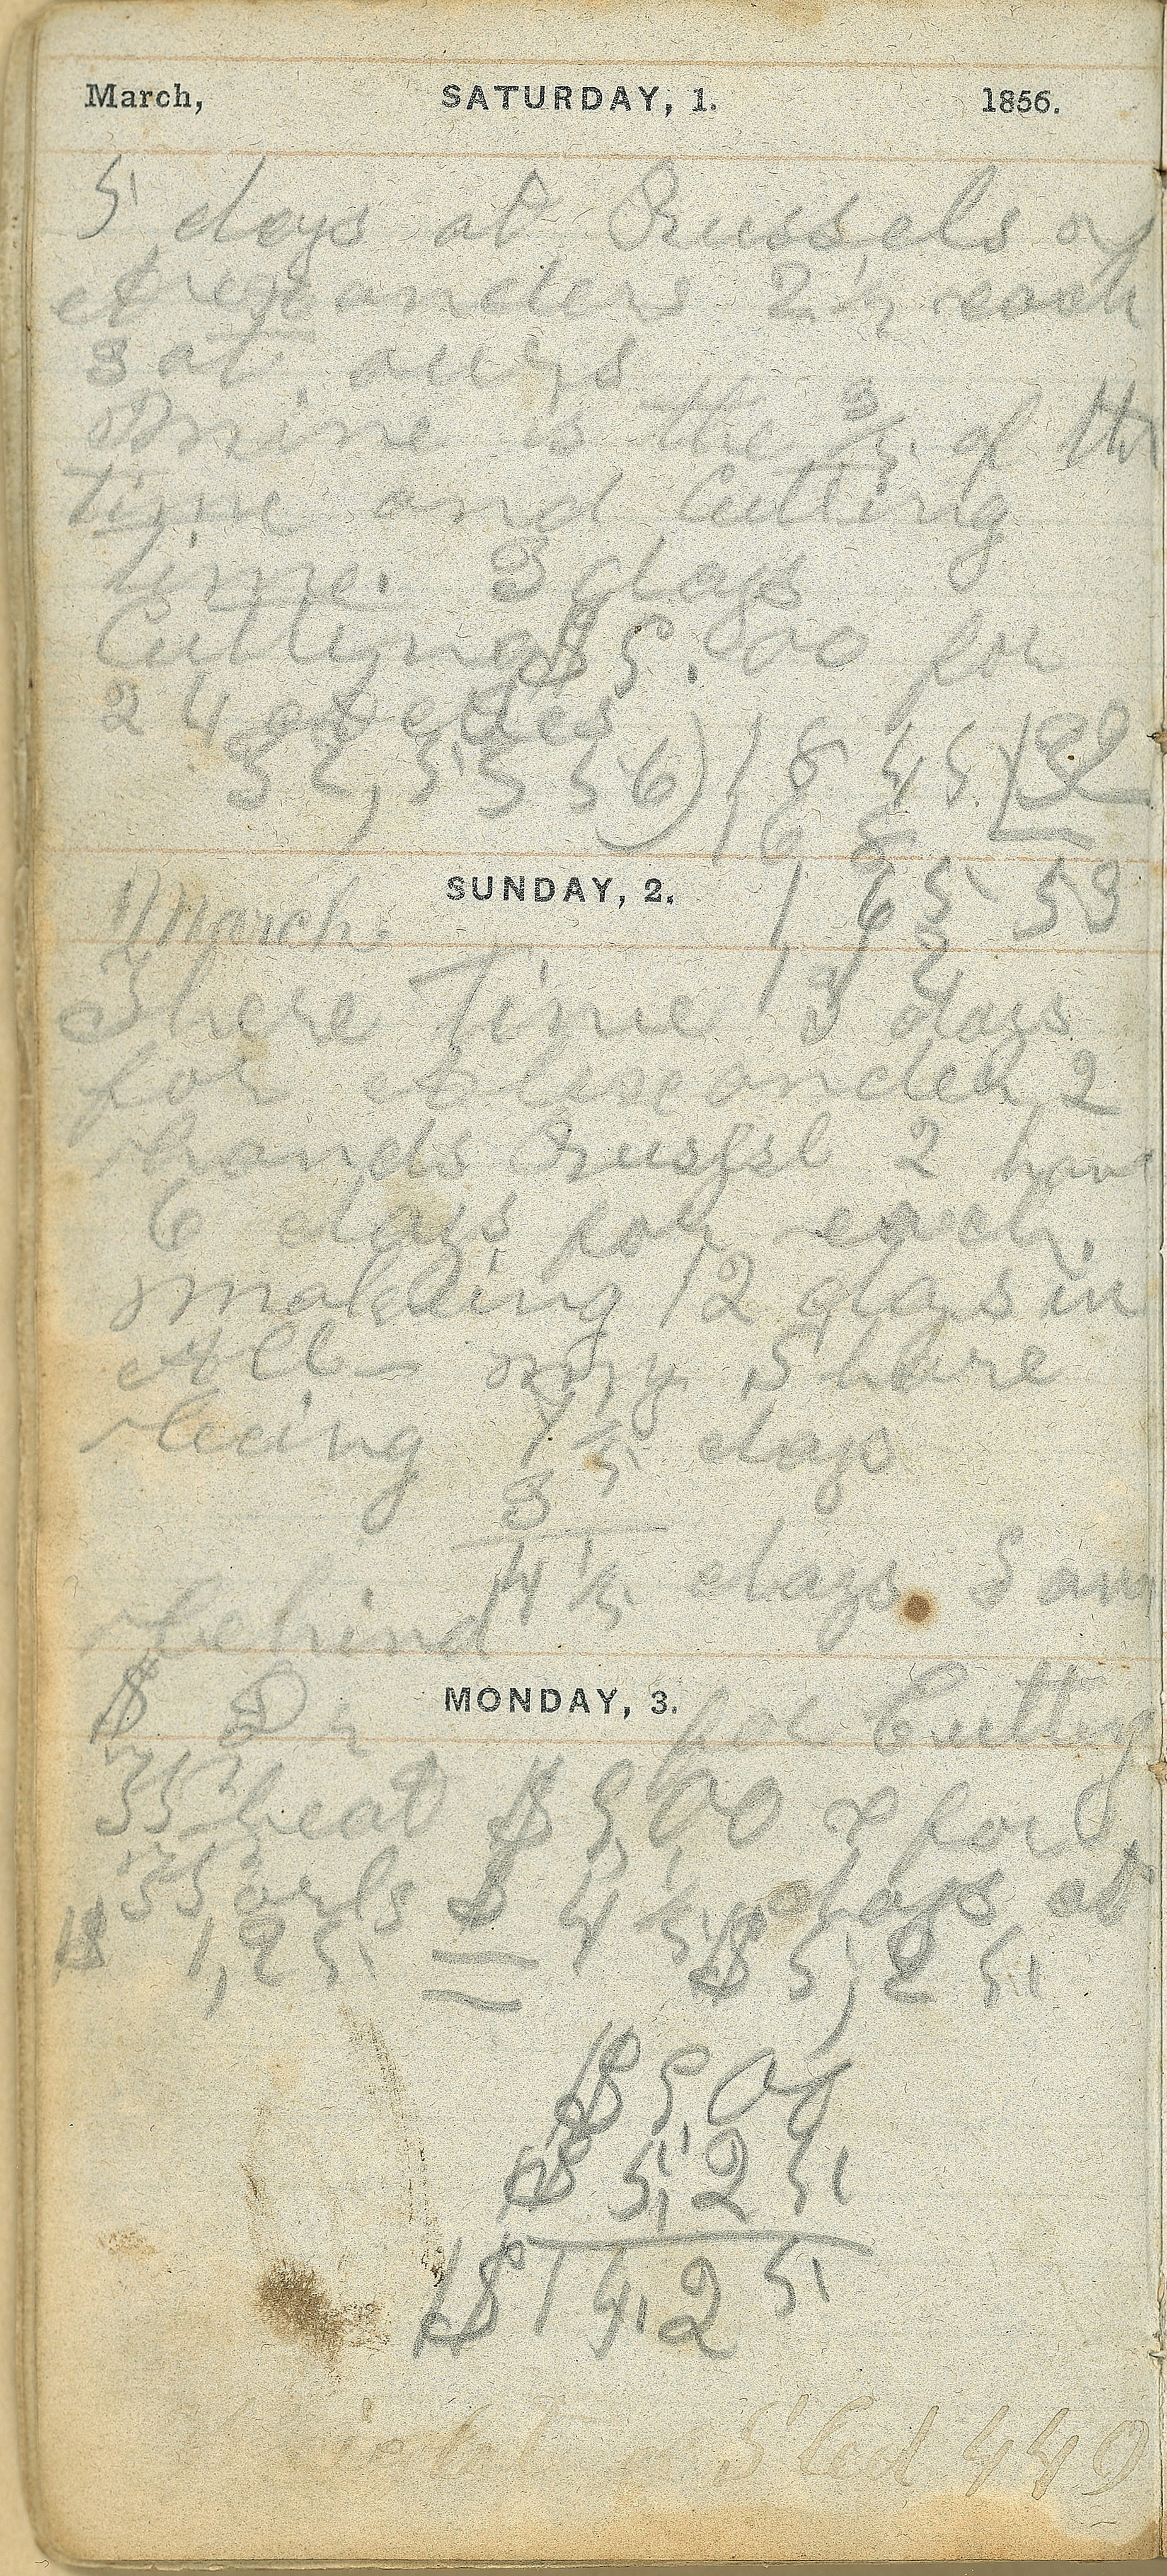 March, SATURDAY, 1. 1856.
5 days at Russels &
Alexanders 2 1/2 each
3 at ours
Mine is the 3/5 of the
time and Cutting
time. 3 days
Cutting $5.00 for
24
SUNDAY, 2.
March.
There Time 3 days
for Alexander 2
hands Russel 2 han
6 days for each.
making 12 days in
All my Share
being 7 1/5 days
3
4 1/5 days I am
behind
MONDAY, 3.
$ Dr for Cutting
35 heat $ 9,00 & for
$ 4 1/5 days at
$ 1,25 $ 5,25
$ 9,00
$ 5,25
$ 14,25
Sled 449